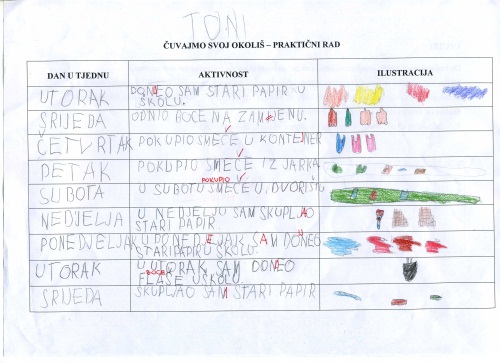 TONI
ČUVAJMO SVOJ OKOLIŠ – PRAKTIČNI RAD
DAN U TJEDNU AKTIVNOST ILUSTRACIJA
UTORAK DONEO SAM STARI PAPIR U
ŠKOLU.
SRIJEDA ODNIO BOCE NA ZAMJENU.
ČETVRTAK POKUPIO SMEĆE U KONTEJNER
PETAK POKUPIO SMEĆE IZ JARKA
POKUPIO
SUBOTA U SUBOTU SMEĆE U DVORIŠTU
NEDJELJA U NEDJELJU SAM SKUPLJAO
STARI PAPIR
PONEDJELJAK U PONEDJELJAK SAM DONEO
STARI PAPIR U ŠKOLU.
UTORAK U UTORAK SAM DONEO
BOCE
FLAŠE U ŠKOLU
SRIJEDA SKUPLJAO SAM STARI PAPIR